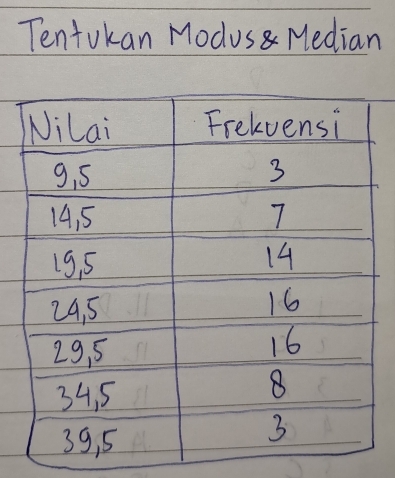 Tentukan Modus & Median
Nilai Frekuensi
9,5 3
14,5 7
19,5 14
24,5 16
29,5 16
34,5 8
39,5 3